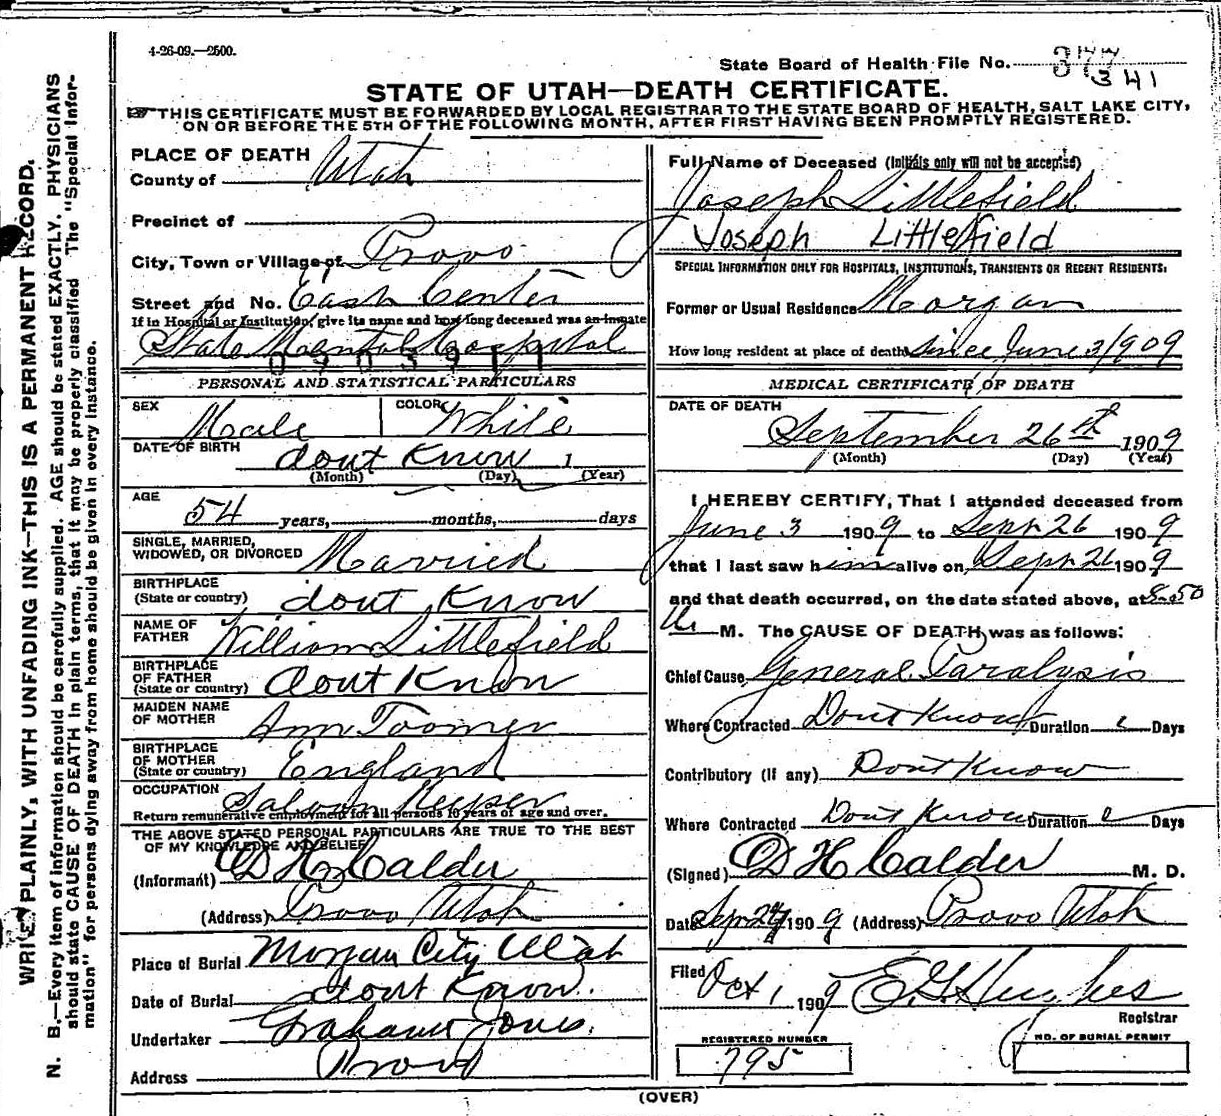 4-26-09.—2500.
State Board of Health File No.
341
STATE OF UTAH—DEATH CERTIFICATE.
THIS CERTIFICATE MUST BE FORWARDED BY LOCAL REGISTRAR TO THE STATE BOARD OF HEALTH, SALT LAKE CITY,
ON OR BEFORE THE 5TH OF THE FOLLOWING MONTH, AFTER FIRST HAVING BEEN PROMPTLY REGISTERED.
WRITE PLAINLY, WITH UNFADING INK—THIS IS A PERMANENT RECORD.
N. B.—Every item of information should be carefully supplied. AGE should be stated EXACTLY. PHYSICIANS
should state CAUSE OF DEATH in plain terms, that it may be properly classified The "Special Infor-
mation" for persons dying away from home should be given in every instance.
PLACE OF DEATH
County of Utah
Precinct of
City, Town or Village of Provo
Street and No. East Center
If in Hospital or Institution, give its name and how long deceased was an inmate
State Mental Hospital
0903911
PERSONAL AND STATISTICAL PARTICULARS
SEX Male COLOR White
DATE OF BIRTH dont Know 1
(Month) (Day) (Year)
AGE
54 years, months, days
SINGLE, MARRIED,
WIDOWED, OR DIVORCED Married
BIRTHPLACE
(State or country) dont Know
NAME OF
FATHER William Littlefield
BIRTHPLACE
OF FATHER
(State or country) dont Know
MAIDEN NAME
OF MOTHER Ann Toomer
BIRTHPLACE
OF MOTHER
(State or country) England
OCCUPATION Saloon Keeper
Return remunerative employment for all persons 10 years of age and over.
THE ABOVE STATED PERSONAL PARTICULARS ARE TRUE TO THE BEST
OF MY KNOWLEDGE AND BELIEF
(Informant) D H Calder
(Address) Provo Utah
Place of Burial Morgan City Utah
Date of Burial dont Know.
Undertaker Graham Jones
Address Provo
Full Name of Deceased (Initials only will not be accepted)
Joseph Littlefield
Joseph Littlefield
SPECIAL INFORMATION ONLY FOR HOSPITALS, INSTITUTIONS, TRANSIENTS OR RECENT RESIDENTS.
Former or Usual Residence Morgan
How long resident at place of death since June 3/909
MEDICAL CERTIFICATE OF DEATH
DATE OF DEATH
September 26th 1909
(Month) (Day) (Year)
I HEREBY CERTIFY, That I attended deceased from
June 3 1909 to Sept 26 1909
that I last saw him alive on Sept 26 1909
and that death occurred, on the date stated above, at 8.50
M. The CAUSE OF DEATH was as follows:
Chief Cause General Paralysis
Where Contracted Dont Know Duration Days
Contributory (if any) Dont Know
Where Contracted Dont Know Duration Days
(Signed) D H Calder M. D.
Date Sep 27 1909 (Address) Provo Utah
Filed Oct 1, 1909 E G Hughes
Registrar
REGISTERED NUMBER
795
NO. OF BURIAL PERMIT
(OVER)